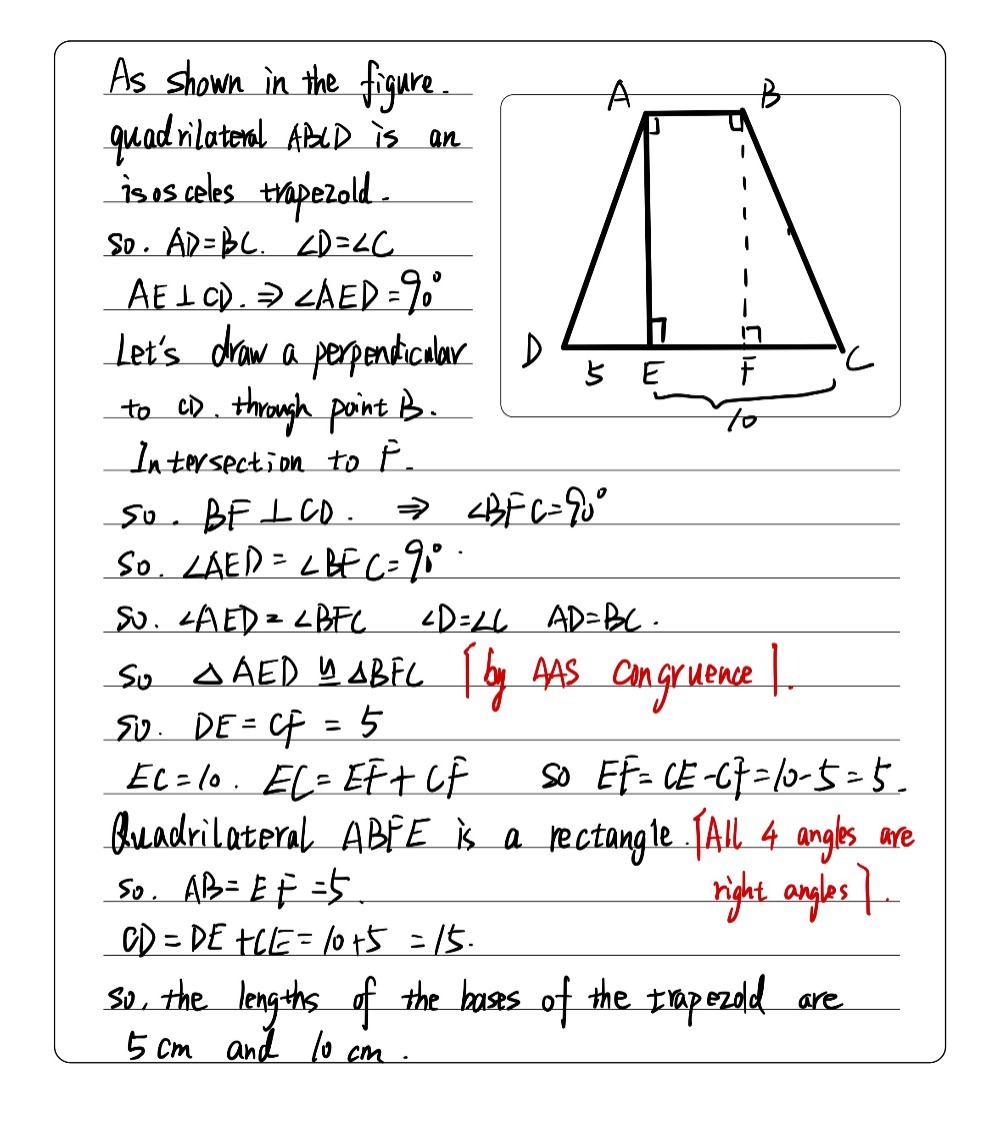 As shown in the figure.
quadrilateral ABCD is an
isosceles trapezold.
so. AD=BC. ∠D=∠C
AE⊥CD. ⇒ ∠AED=90°
Let's draw a perpendicular
to CD. through point B.
Intersection to F.
so. BF⊥CD. ⇒ ∠BFC=90°
So. ∠AED=∠BFC=90°.
so. ∠AED=∠BFC ∠D=∠C AD=BC.
so △AED ≌ △BFC [by AAS congruence].
so. DE=CF=5
EC=10. EC=EF+CF so EF=CE-CF=10-5=5.
Quadrilateral ABFE is a rectangle. [All 4 angles are
so. AB=EF=5. right angles].
CD=DE+CE=10+5=15.
so, the lengths of the bases of the trapezold are
5cm and 10 cm.
A B
D 5 E F C
10